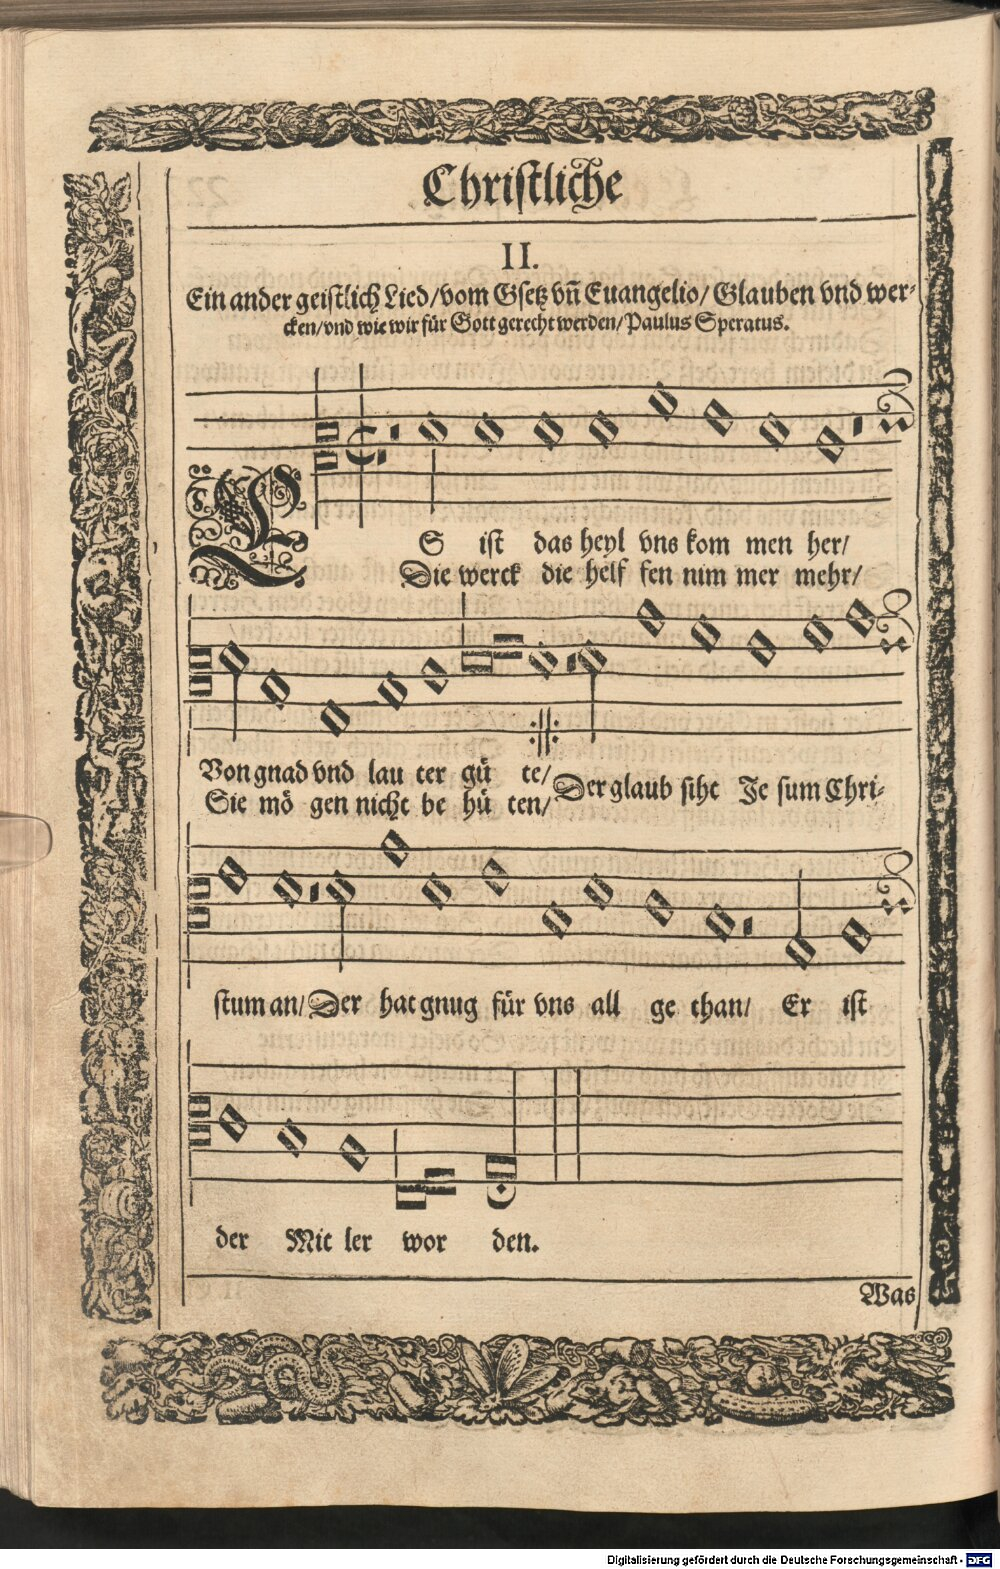 Christliche
II.
Ein ander geistlich Lied/vom Gsetz vñ Euangelio/Glauben vnd wer-
cken/vnd wie wir für Gott gerecht werden/Paulus Speratus.
ES ist das heyl vns kom men her/
Die werck die helf fen nim mer mehr/
Von gnad vnd lau ter gü te/ Der glaub siht Je sum Chri-
Sie mö gen nicht be hü ten/
stum an/Der hat gnug für vns all ge than/ Er ist
der Mit ler wor den.
Was
Digitalisierung gefördert durch die Deutsche Forschungsgemeinschaft - DFG